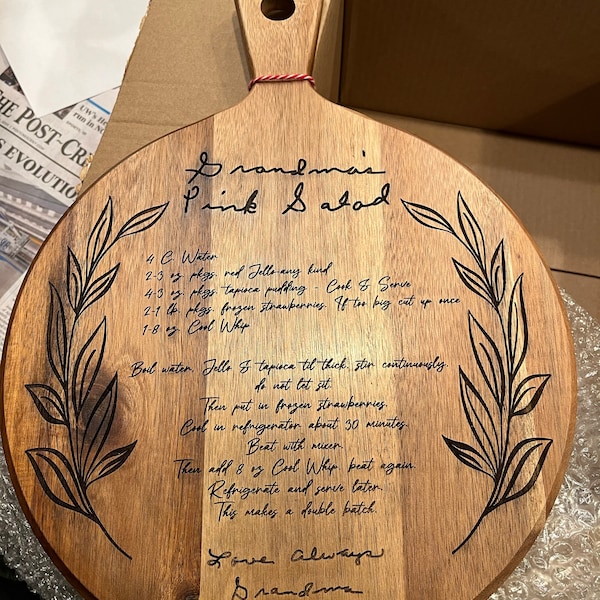 THE POST-CRE
S EVOLUTION
UW's
run in
Grandma's
Pink Salad
4 C. Water
2-3 oz. pkgs. red Jello-any kind
4-3 oz. pkgs. tapioca pudding - Cook & Serve
2-1 lb. pkgs. frozen strawberries. If too big cut up once
1-8 oz. Cool Whip
Boil water, Jello & tapioca til thick, stir continuously,
do not let sit.
Then put in frozen strawberries.
Cool in refrigerator about 30 minutes.
Beat with mixer.
Then add 8 oz Cool Whip, beat again.
Refrigerate and serve later.
This makes a double batch.
Love Always
Grandma